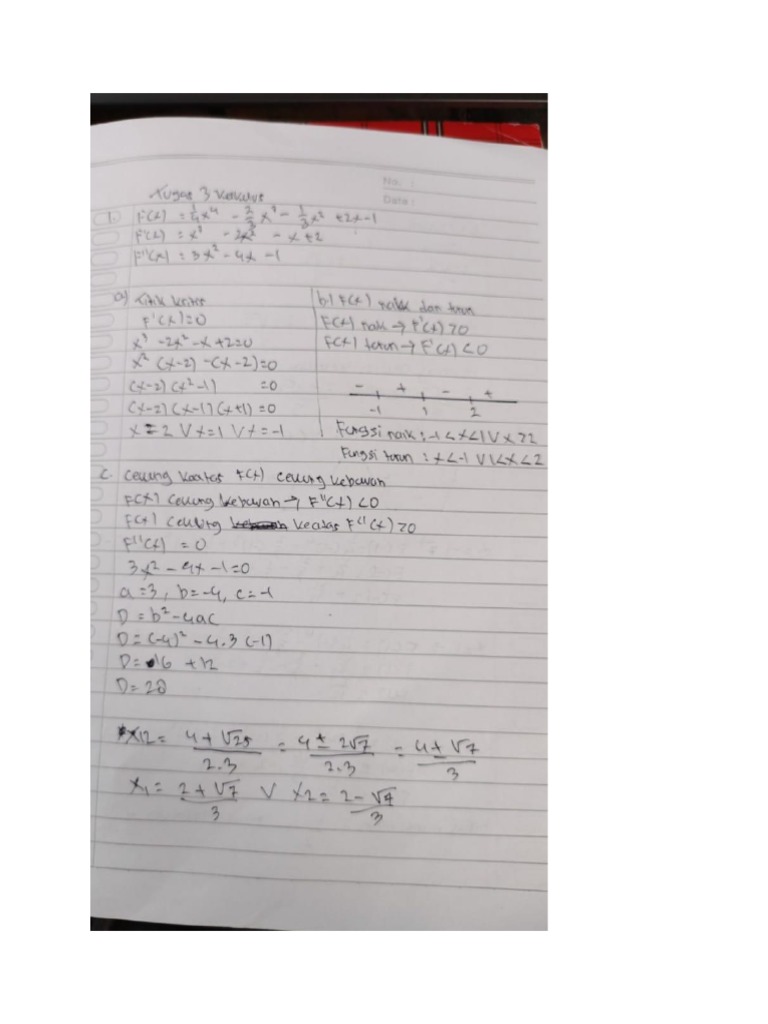 No. :
Date :
Tugas 3 Kalkulus
1. F(x) = 1/4 x⁴ - 2/3 x³ - 1/3 x² + 2x - 1
F'(x) = x³ - 2x² - x + 2
F''(x) = 3x² - 4x - 1
a) Titik kritis
F'(x) = 0
x³ - 2x² - x + 2 = 0
x² (x-2) - (x-2) = 0
(x-2) (x²-1) = 0
(x-2) (x-1) (x+1) = 0
x = 2 V x = 1 V x = -1
b) F(x) naik dan turun
F(x) naik → F'(x) > 0
F(x) turun → F'(x) < 0
- + - +
-1 1 2
Fungsi naik : -1 < x < 1 V x > 2
Fungsi turun : x < -1 V 1 < x < 2
c. Cekung keatas F(x) cekung kebawah
F(x) cekung kebawah → F''(x) < 0
F(x) cekung keatas F''(x) > 0
F''(x) = 0
3x² - 4x - 1 = 0
a = 3, b = -4, c = -1
D = b² - 4ac
D = (-4)² - 4.3 (-1)
D = 16 + 12
D = 28
x12 = (4 + √25)/2.3 = (4 ± 2√7)/2.3 = (4 ± √7)/3
x₁ = (2 + √7)/3 V x2 = (2 - √7)/3